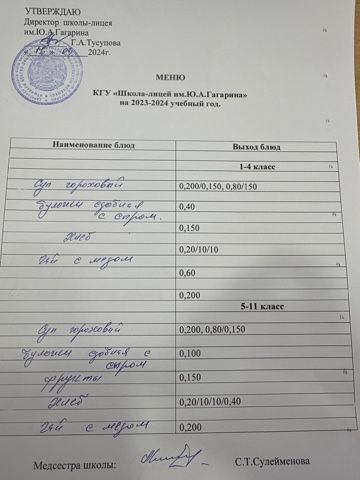 УТВЕРЖДАЮ
Директор школы-лицея
им.Ю.А.Гагарина
Г.А.Тусупова
2024г.
МЕНЮ
КГУ «Школа-лицей им.Ю.А.Гагарина»
на 2023-2024 учебный год.
Наименование блюд Выход блюд
1-4 класс
Суп гороховый 0,200/0,150, 0,80/150
Булочки сдобная 0,40
с сыром.
Хлеб 0,150
0,20/10/10
Чай с медом
0,60
0,200
5-11 класс
Суп гороховый 0,200, 0,80/0,150
Булочки сдобная с 0,100
сыром
фрукты 0,150
Хлеб 0,20/10/10/0,40
Чай с медом 0,200
Медсестра школы: С.Т.Сулейменова